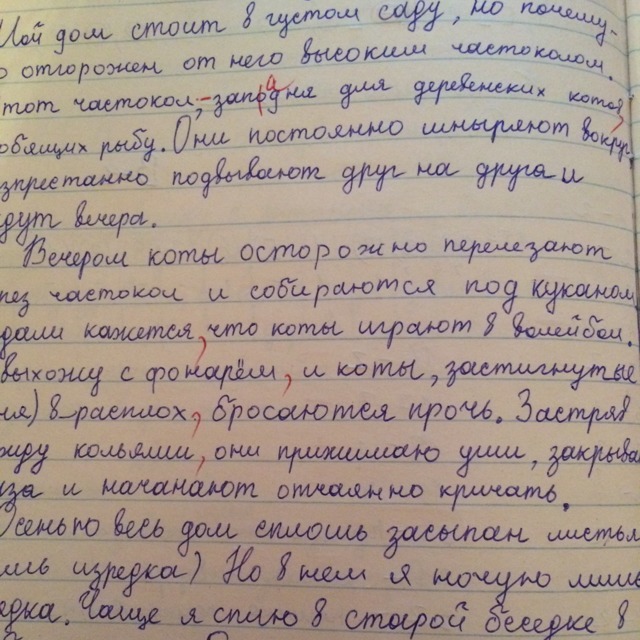 Мой дом стоит в густом саду, но почему-
о отгорожен от него высоким частоколом.
тот частокол, – западня для деревенских котов,
юбящих рыбу. Они постоянно шныряют вокруг,
зпрестанно подвывают друг на друга и
дут вечера.
Вечером коты осторожно перелезают
рез частокол и собираются под куканом.
дали кажется, что коты играют в волейбол.
выхожу с фонарём, и коты, застигнутые
ня) в расплох, бросаются прочь. Застряв
жду кольями, они прижимаю уши, закрыва
аза и начанают отчаянно кричать.
Осенью весь дом сплошь засыпан листья
ишь изредка) Но в нем я ночую лишь
едка. Чаще я сплю в старой беседке в